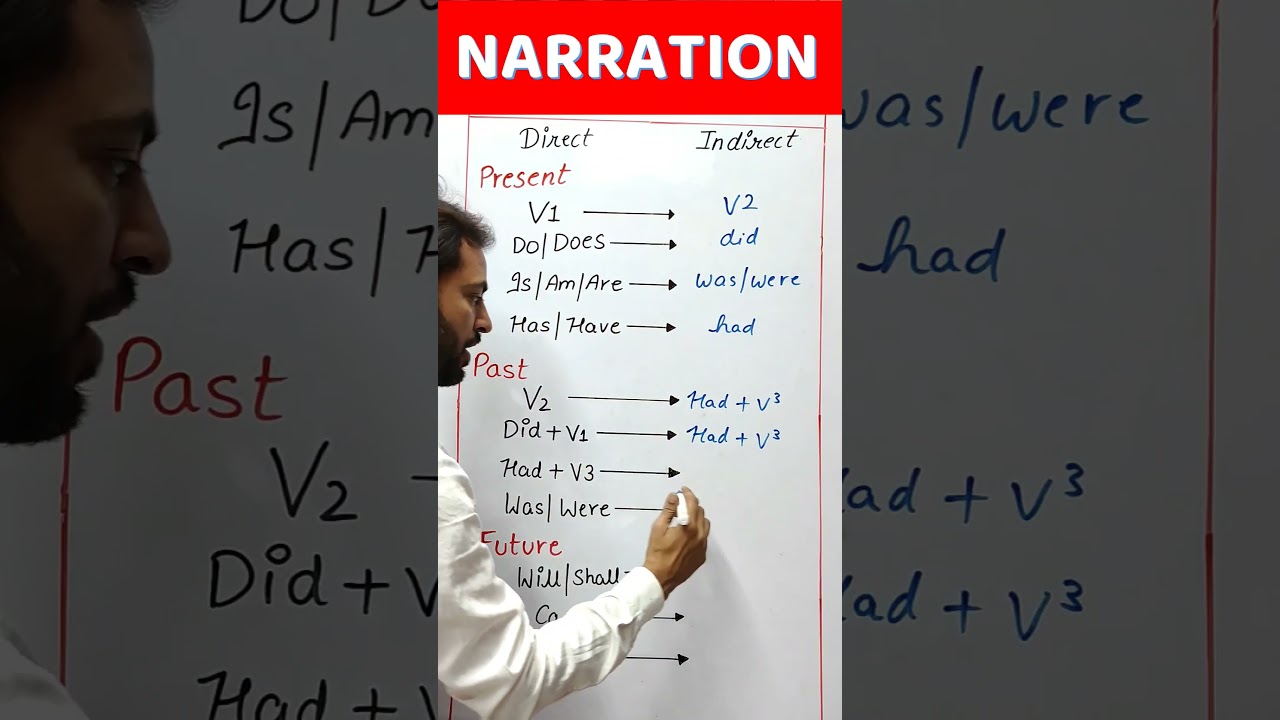 NARRATION
Direct Indirect
Present
V1 → V2
Do/Does → did
Is/Am/Are → was/were
Has/Have → had
Past
V2 → Had + V3
Did + V1 → Had + V3
Had + V3 →
Was/Were →
Future
Will/Shall